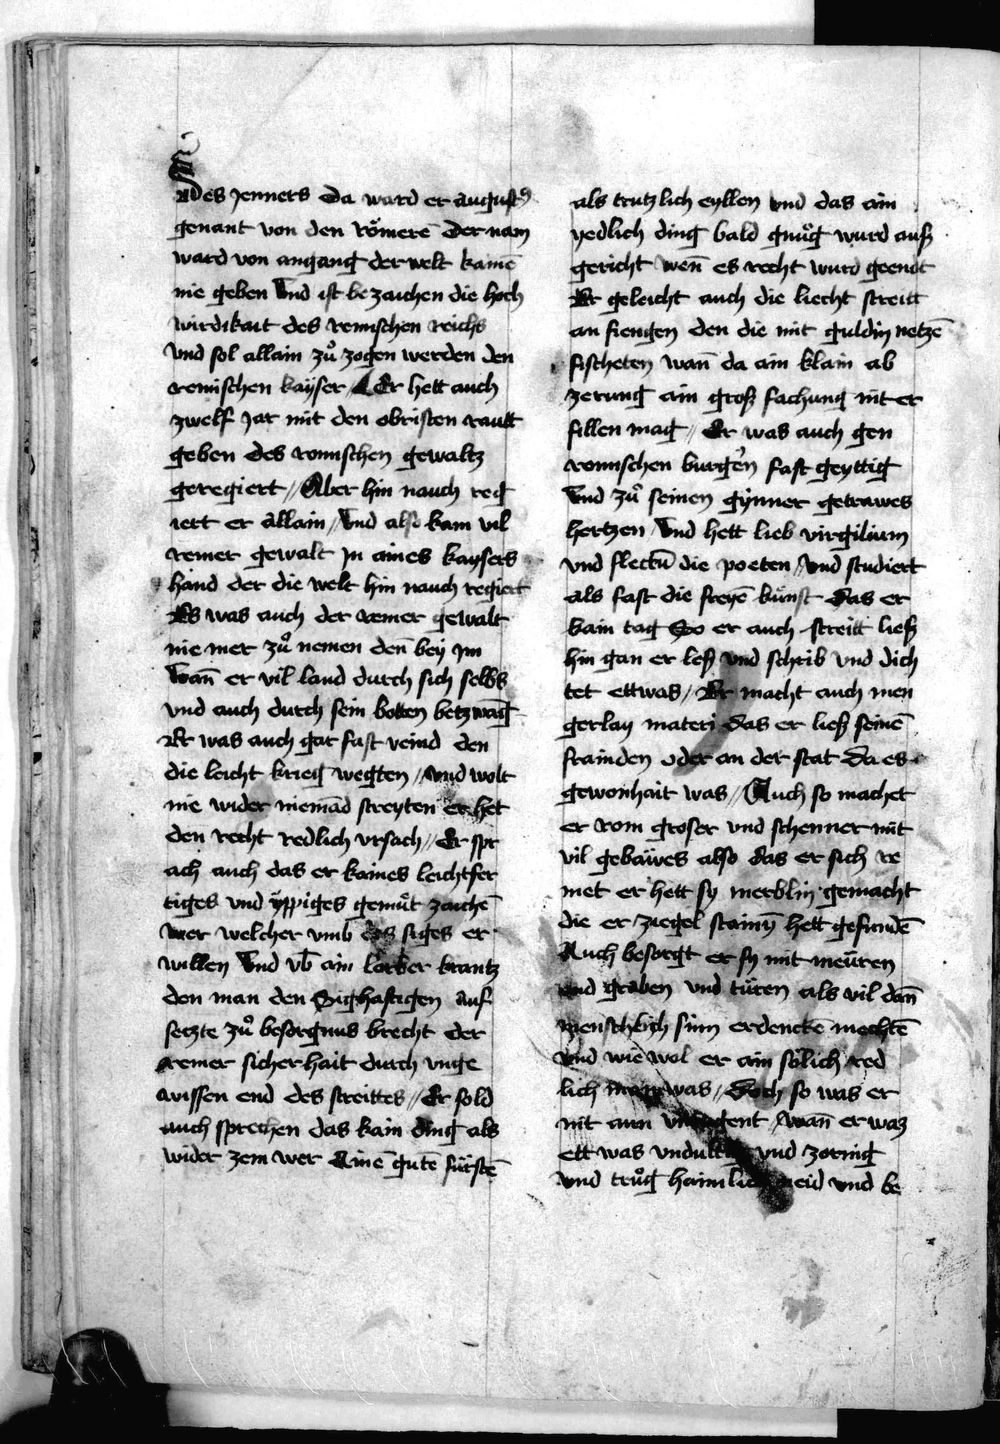 des Jenners da ward er august9
genant von den römerē Der nam
ward von angang der welt kainē
nie geben Vnd ist bezaichen die hoch
wirdikait des remischen reichs
Vnd sol allain zů zogen werden den
remischen kayser // Er hett auch
zwelf Jar mit den obristen rautt
geben des romischen gewaltz
geregiert // Aber hin nauch reg
iert er allain / Vnd also kam vil
remer gewalt Jn aines kaysers
hand der die welt hin nauch regiert
Es was auch der remer gewalt
nie mer zů nemen den̄ bey Jm
Wan̄ er vil land durch sich selbs
vnd auch durch sein botten betzwāg
Er was auch gar fast veind den
die leicht krieg wegten // vnd wolt
nie wider niemād streyten er het
den recht redlich vrsach // Er spr
ach auch das er kaines leichtfer
tiges vnd ÿppiges gemüt zaichē
wer welcher vmb des siges er
willen Vnd vb̄ ain lorber krantz
den man den Sighaftigen auf
setzte zů besorgnus brecht der
remer sicherhait durch vnge
wissen end des streittes // Er sold
auch sprechen das kain ding als
wider zem wer Ainē gutē fürstē
als trutzlich eyllen vnd das ain
yedlich ding bald gnůg wurd auß
gericht wen̄ es recht wurd geendt
Er geleicht auch die liecht streitt
an fiengen den die mit guldin netzē
fischeten wan̄ da ain klain ab
zerung ain groß fachung nit er
fillen mag // Er was auch gen
romischen burgern fast geyttig
Vnd zů seinen gynner getrawes
hertzen Vnd hett lieb virgilium
vnd flectū die poeten // Vnd studiert
als fast die freyē künst Das er
kain tag So er auch streitt ließ
hin gan er leß vnd schrib vnd dich
tet ettwas / Er macht auch men
gerlay materi das er ließ seinē
frainden oder an der stat Da es
gewonhait was // Auch so machet
er rom groser vnd schenner mit
vil gebaẅes also das er sich re
met er hett sy merblin gemacht
die er ziegel stainÿ hett gefundē
Auch besorgt er sy mit meüren
vnd graben vnd türen als vil dan̄
menschlich sinn erdenckē mechtē
vnd wie wol er ain sölich red
lich man was // Doch so was er
nit aun vntugent / wan̄ er waz
ett was vndultig vnd zornig
vnd trůg haimlich neid vnd be